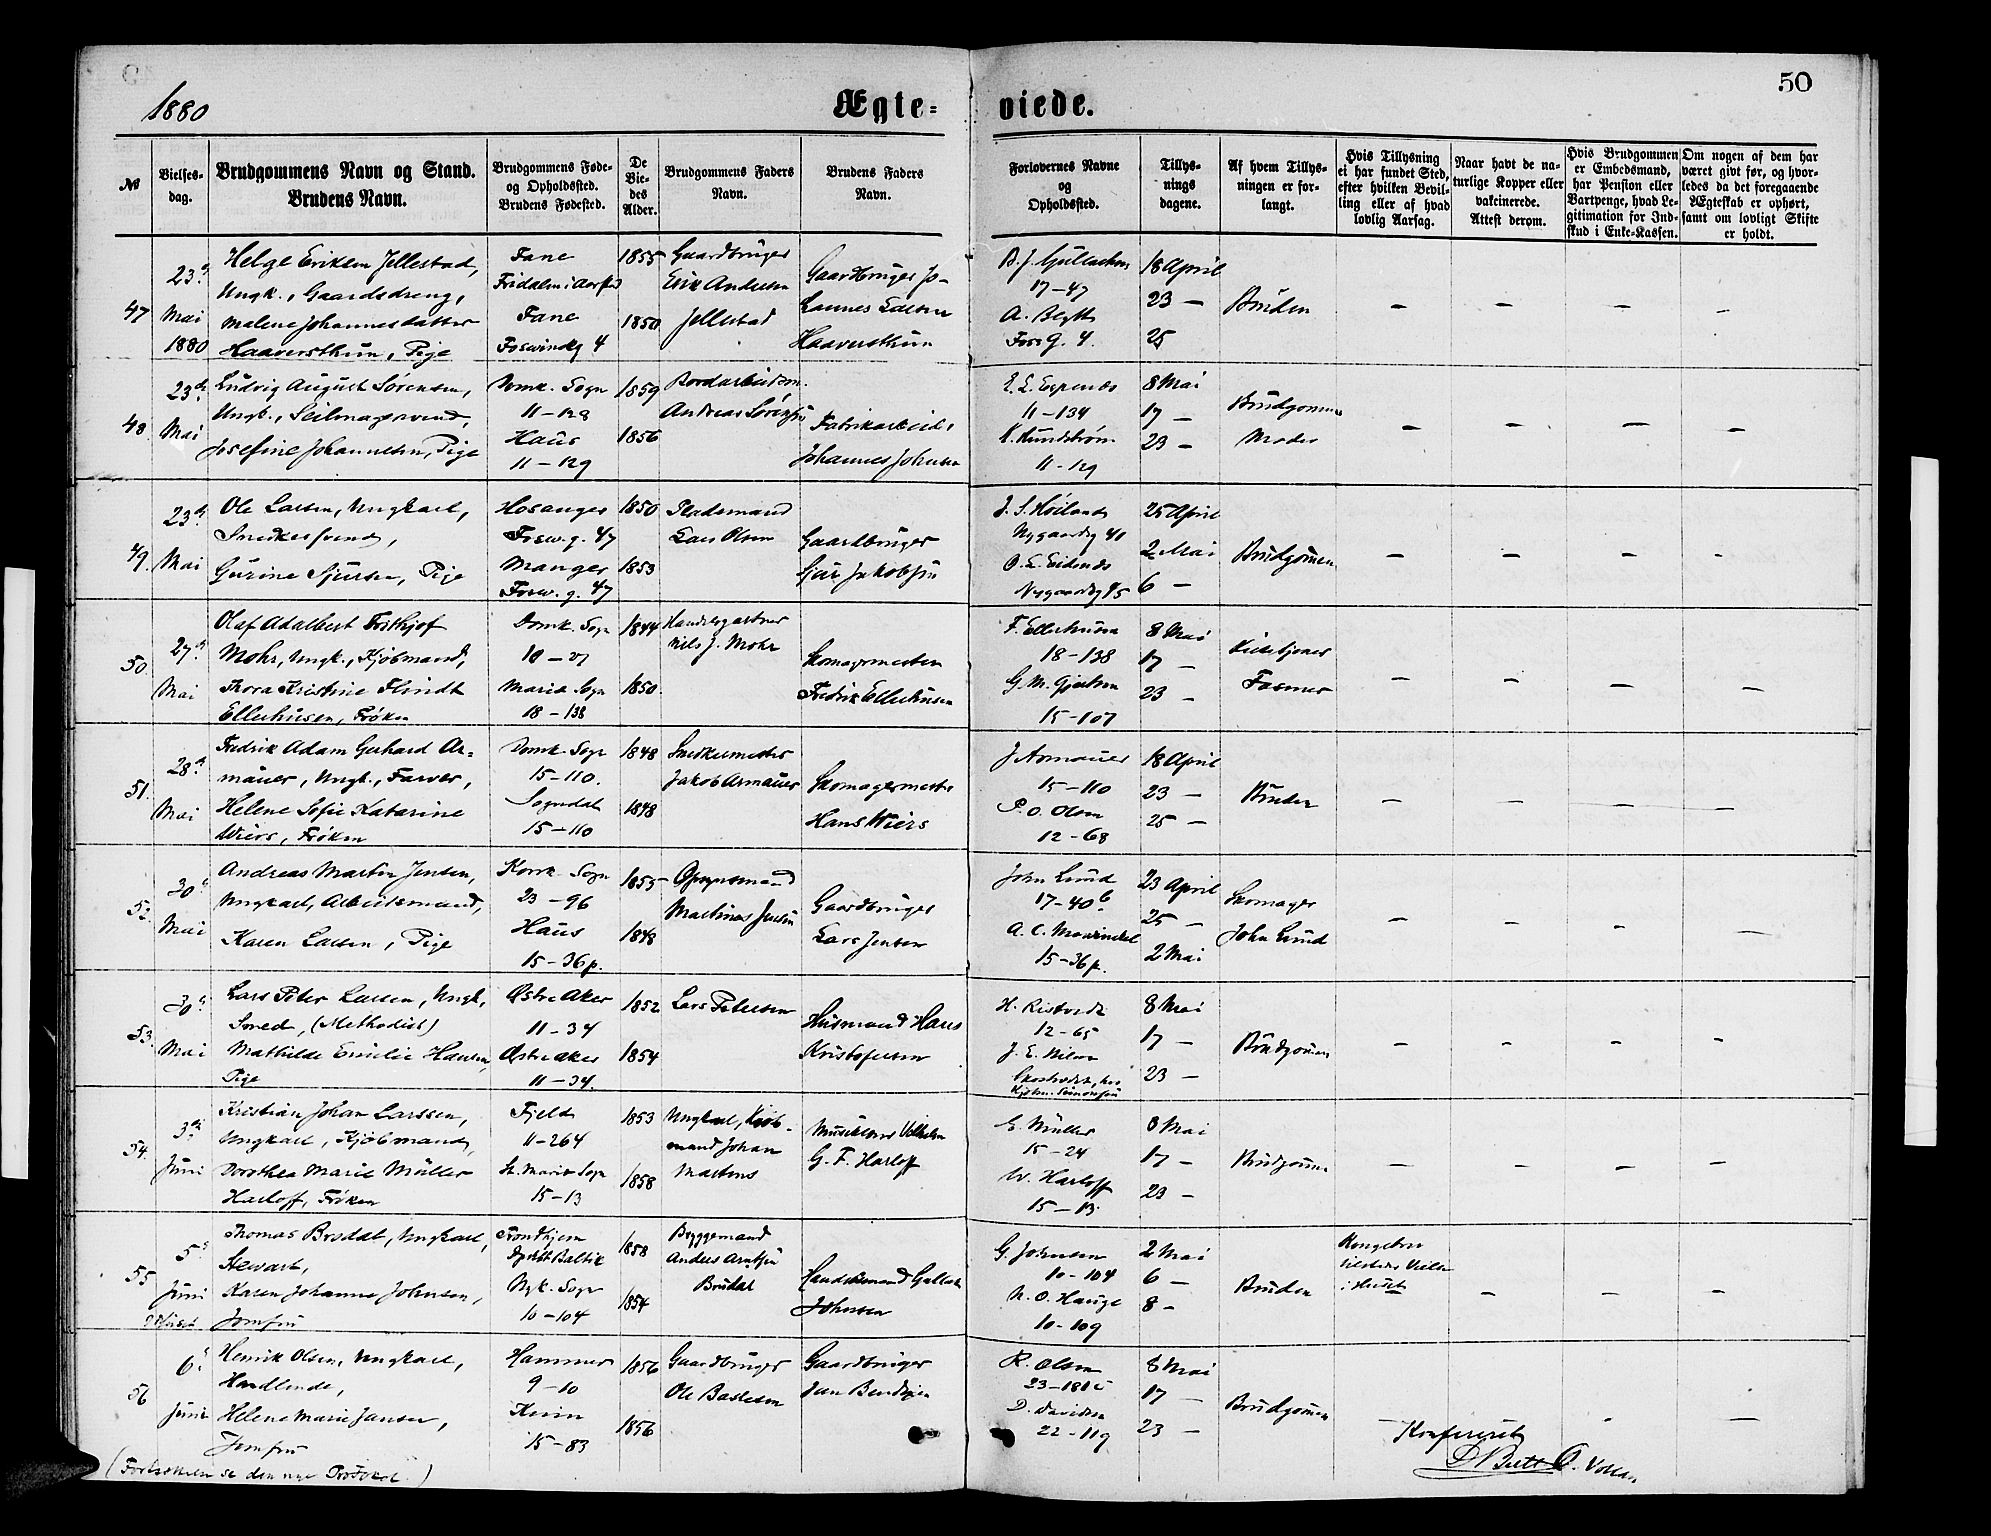 1880
Ægte-
viede.
50
№
Vielses-
dag.
Brudgommens Navn og Stand.
Brudens Navn.
Brudgommens Føde-
og Opholdssted.
Brudens Fødested.
De
Vie-
des
Alder.
Brudgommens Faders
Navn.
Brudens Faders
Navn.
Forlovernes Navne
og
Opholdssted.
Tillys-
nings
dagene.
Af hvem Tillys-
ningen er for-
langt.
Hvis Tillysning
ei har fundet Sted,
efter hvilken Bevil-
ling eller af hvad
lovlig Aarsag.
Naar havt de na-
turlige Kopper eller
vakcinerede.
Attest derom.
Hvis Brudgommen
er Embedsmand,
har Pension eller
Vartpenge, hvad Le-
gitimation for Ind-
skud i Enke-Kassen.
Om nogen af dem har
været givt før, og hvor-
ledes da det foregaaende
Ægteskab er ophørt,
samt om lovligt Skifte
er holdt.
47
23d
Mai
1880
Helge Eriksen Jellestad,
Ungk., Gaardsdreng,
Malene Johannesdatter
Haaversthun, Pige
Fane
Fridalen i Aarstad
Fane
1855
1850
Gaardbruger
Erik Andersen
Jellestad
Gaardbruger Jo-
hannes Larsen
Haaversthun
17-47
A. Blytt
18 April
23 —
25
Bruden
48
23d
Mai
Ludvig August Sørensen,
Ungk., Seilmagersvend,
Josefine Johannesen, Pige
Domk. Sogn
11-128
Haus
11-129
1859
1856
Andreas Sørensen
Fabrikarbeider
Johannes Johnsen
11-134
11-129
8 Mai
17 —
23 —
Brudgommens
Moder
49
23d
Mai
Ole Larsen, Ungkarl,
Snedkersvend,
Gurine Sjursen, Pige
Hosanger
Forsw. g. 47
Manger
Forsw. g. 47
1850
1853
Pladsmand
Lars Olsen
Gaardbruger
Sjur Jakobsen
Nygaardsg 41
Nygaardsg 45
25 April
2 Mai
6 —
Brudgommen
50.
27d
Mai
Olaf Adalbert Frithjof
Mohr, Ungk., Kjøbmand,
Thora Kristine Flindt
Ellerhusen, Frøken
Domk. Sogn
Maria Sogn
18-138
1844
1850.
Handelsgartner
Nils J. Mohr
Skomagermester
Fredrik Ellerhusen
F. Ellerhusen
18-138
G. M. Gjertsen
15-107
8 Mai
17 —
23 —
Kirketjener
Fasmer
51.
28d
Mai
Fredrik Adam Gerhard Ar-
mauer, Ungk., Farver,
Helene Sofie Katarine
Wiers, Frøken
Domk. Sogn
15-110.
Sogndal
15-110
1848
1848
Snedkermester
Jakob Armauer
Skomagermester
Hans Wiers
J. Armauer
15-110
P. O. Olsen
12-68
18 April
23 —
25 —
Bruden
52.
30d
Mai
Andreas Martin Jensen,
Ungkarl, Arbeidsmand,
Karen Larsen, Pige
Korsk. Sogn
23-96
Haus
15-36p.
1855
1848
Opsynsmand
Martinus Jensen
Gaardbruger
Lars Jensen
John Lund
17-40b
15-36p.
23 April
25 —
2 Mai
Skomager
John Lund
53.
30d
Mai
Lars Peter Larsen, Ungk,
Smed, (Methodist)
Mathilde Emilie Hansen,
Pige
Østre Aker
11-34
Østre Aker
11-34.
1852
1854
Lars Petersen
Husmand Hans
Kristofersen
12-65
8 Mai
17 —
23 —
Brudgommen
54.
3d
Juni
Kristian Johan Larssen,
Ungkarl, Kjøbmand,
Dorothea Marie Müller
Harloff, Frøken
Fjeld
11-264
St. Maria Sogn
15-13
1853
1858
Ungkarl, Kjøb-
mand Johan
Martens
Musiklærer Vilhelm
G. F. Harloff
E. Müller
15-24
W. Harloff
15-13
8 Mai
17 —
23 —
Brudgommen
55
5d
Juni
i Huset
Thomas Brudal, Ungkarl,
Stewart,
Karen Johanne Johnsen,
Jomfru
Trondhjem
Nyk. Sogn
10-104
1858
1854
Byggemand
Anders Arntsen
Brudal
Handelsmand
Johnsen
G. Johnsen
10-104
N. O. Hauge
10-109
2 Mai
6 —
8 —
Bruden
i Huset
56
6d
Juni
Henrik Olsen, Ungkarl,
Handlende,
Helene Marie Jansen,
Jomfru
Hammer
9-10
15-83
1856
1856
Gaardbruger
Gaardbruger
R. Olsen
D. Davidsen
22-119
8 Mai
17 —
23 —
Brudgommen
Konfereret
(Fortsættelsen se den nye Protokol.)